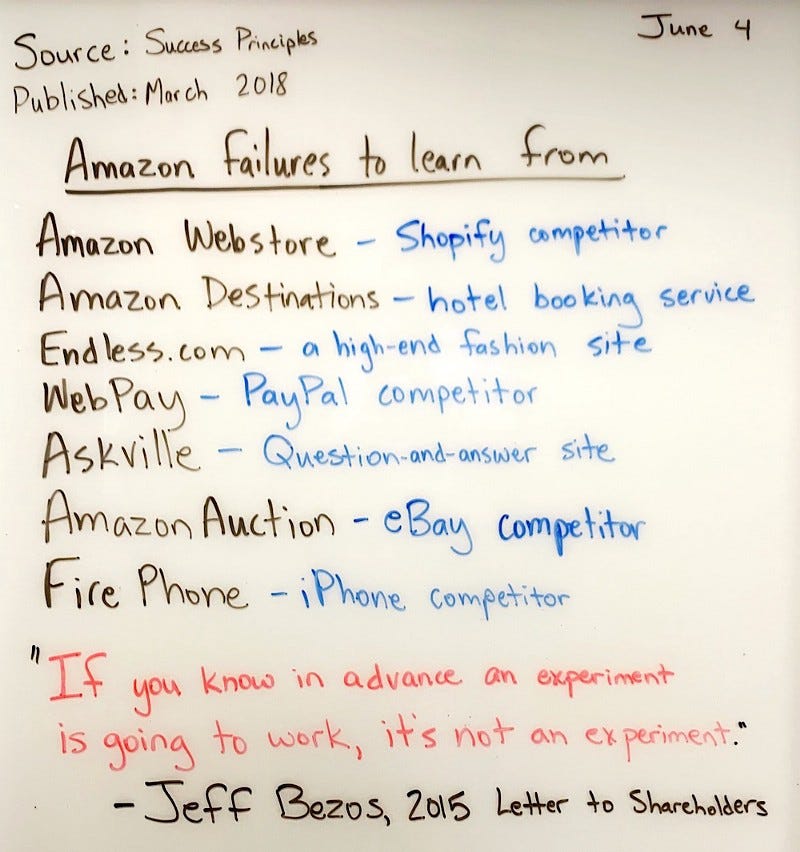 June 4
Source: Success Principles
Published: March 2018
Amazon failures to learn from
Amazon Webstore – Shopify competitor
Amazon Destinations – hotel booking service
Endless.com – a high-end fashion site
WebPay – PayPal competitor
Askville – Question-and-answer site
Amazon Auction – eBay competitor
Fire Phone – iPhone competitor
"If you know in advance an experiment
is going to work, it's not an experiment."
– Jeff Bezos, 2015 Letter to Shareholders